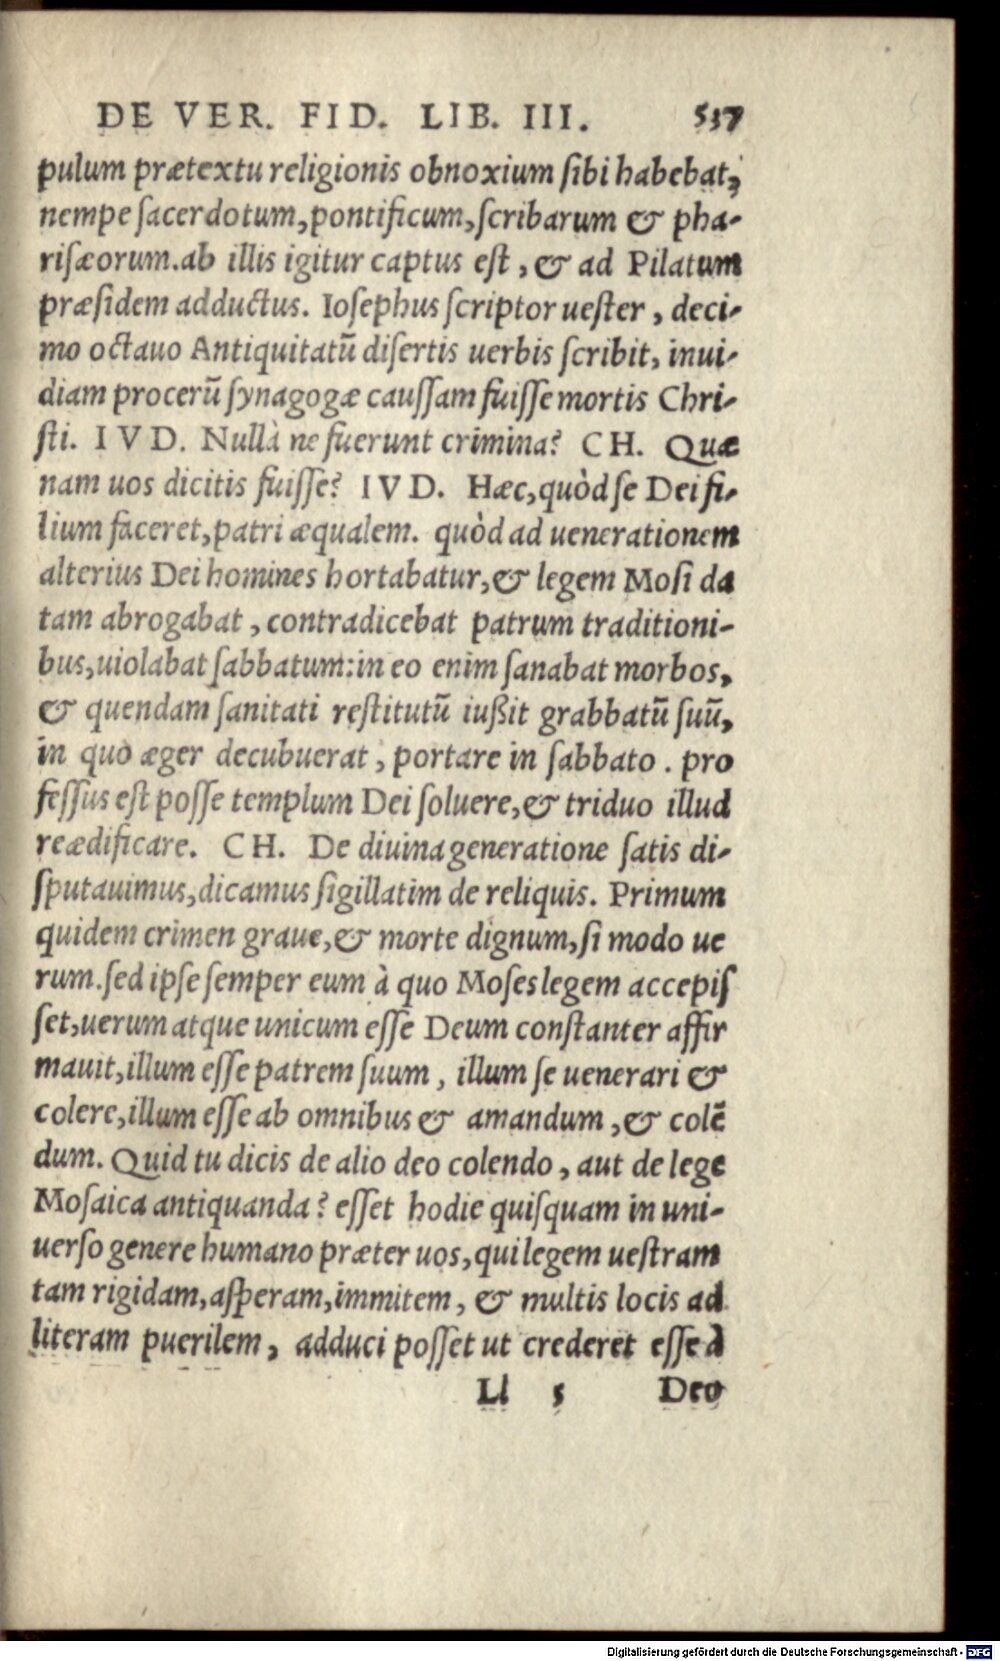 DE VER. FID. LIB. III. 537
pulum prætextu religionis obnoxium ſibi habebat,
nempe ſacerdotum, pontificum, ſcribarum & pha-
riſæorum. ab illis igitur captus eſt, & ad Pilatum
præſidem adductus. Ioſephus ſcriptor ueſter, deci-
mo octauo Antiquitatū diſertis uerbis ſcribit, inui-
diam procerū ſynagogæ cauſſam fuiſſe mortis Chri-
ſti. IVD. Nullà ne fuerunt crimina? CH. Quæ
nam uos dicitis fuiſſe? IVD. Hæc, quòd ſe Dei fi-
lium faceret, patri æqualem. quòd ad uenerationem
alterius Dei homines hortabatur, & legem Moſi da
tam abrogabat, contradicebat patrum traditioni-
bus, uiolabat ſabbatum: in eo enim ſanabat morbos,
& quendam ſanitati reſtitutū iußit grabbatū ſuū,
in quo æger decubuerat, portare in ſabbato. pro
feſſus eſt poſſe templum Dei ſoluere, & triduo illud
reædificare. CH. De diuina generatione ſatis di-
ſputauimus, dicamus ſigillatim de reliquis. Primum
quidem crimen graue, & morte dignum, ſi modo ue
rum. ſed ipſe ſemper eum à quo Moſes legem accepiſ
ſet, uerum atque unicum eſſe Deum conſtanter affir
mauit, illum eſſe patrem ſuum, illum ſe uenerari &
colere, illum eſſe ab omnibus & amandum, & colē
dum. Quid tu dicis de alio deo colendo, aut de lege
Moſaica antiquanda? eſſet hodie quiſquam in uni-
uerſo genere humano præter uos, qui legem ueſtram
tam rigidam, aſperam, immitem, & multis locis ad
literam puerilem, adduci poſſet ut crederet eſſe à
Ll 5 Deo
Digitalisierung gefördert durch die Deutsche Forschungsgemeinschaft - DFG